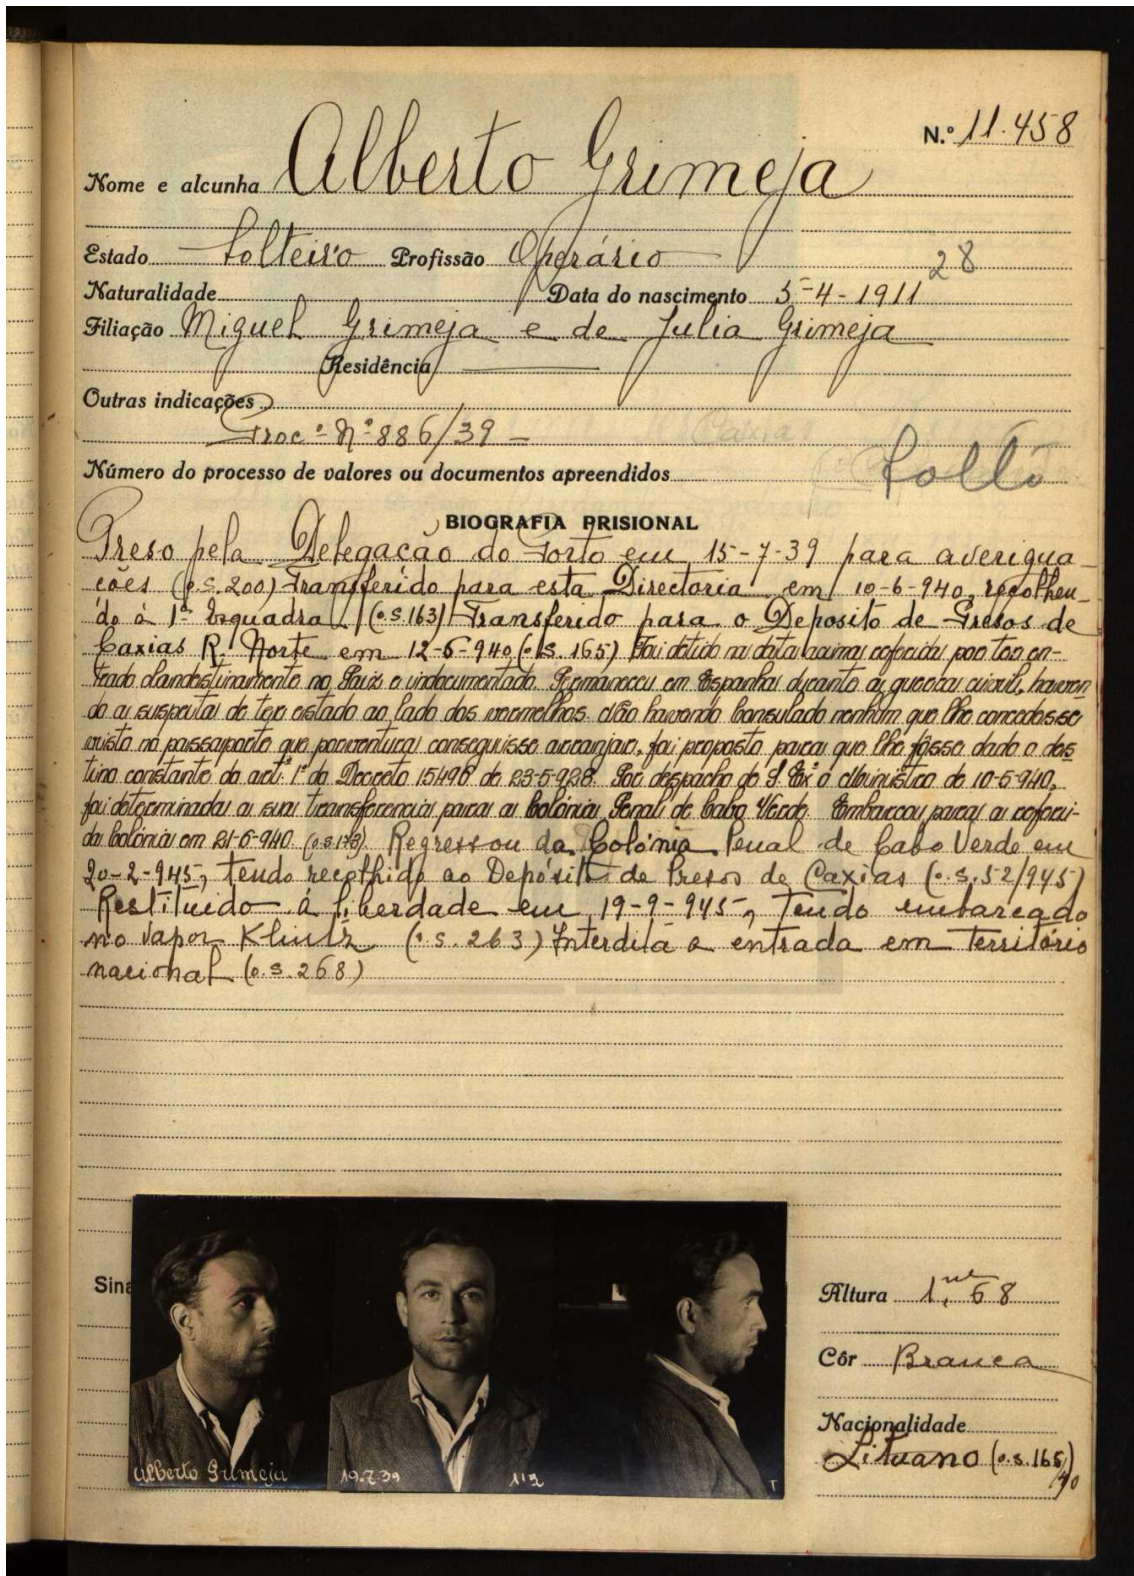 N.º 11.458
Nome e alcunha Alberto Grimeja
Estado Solteiro Profissão Operário
28
Naturalidade Data do nascimento 5-4-1911
Filiação Miguel Grimeja e de Julia Grimeja
Residência
Outras indicações
Proc.º Nº 886/39
Número do processo de valores ou documentos apreendidos
Soltó
BIOGRAFIA PRISIONAL
Preso pela Delegação do Porto em 15-7-39 para averigua
ções (o.s.200) Transferido para esta Directoria em 10-6-940, recolhen-
do à 1ª Esquadra (o.s 163) Transferido para o Deposito de Presos de
Caxias R. Norte em 12-6-940 (o.s. 165) Foi detido na data acima referida por ter en-
trado clandestinamente no Paiz e indocumentado. Permaneceu em Espanha durante a guerra civil, haven
do a suspeita de ter estado ao lado dos vermelhos. Não havendo Consulado nenhum que lhe concedesse
visto no passaporte que porventura conseguisse arranjar, foi proposto para que lhe fôsse dado o des
tino constante do artº. 1º do Decreto 15496 de 23-5-928. Por despacho de S. Exª o Ministro de 10-5-940,
foi determinada a sua transferencia para a Colónia Penal de Cabo Verde. Embarcou para a referi-
da Colónia em 21-6-940. (o.s 173). Regressou da Colónia Penal de Cabo Verde em
20-2-945, tendo recolhido ao Depósito de Presos de Caxias (o.s.52/945)
Restituido á liberdade em 19-9-945, tendo embarcado
no vapor (o.s. 263) Interdita a entrada em território
nacional (o.s. 268)
Sina
Altura 1,m 68
Côr Branca
Nacionalidade
Lituano (o.s. 165/40)
Alberto Grimeja
19.7.39
113
T